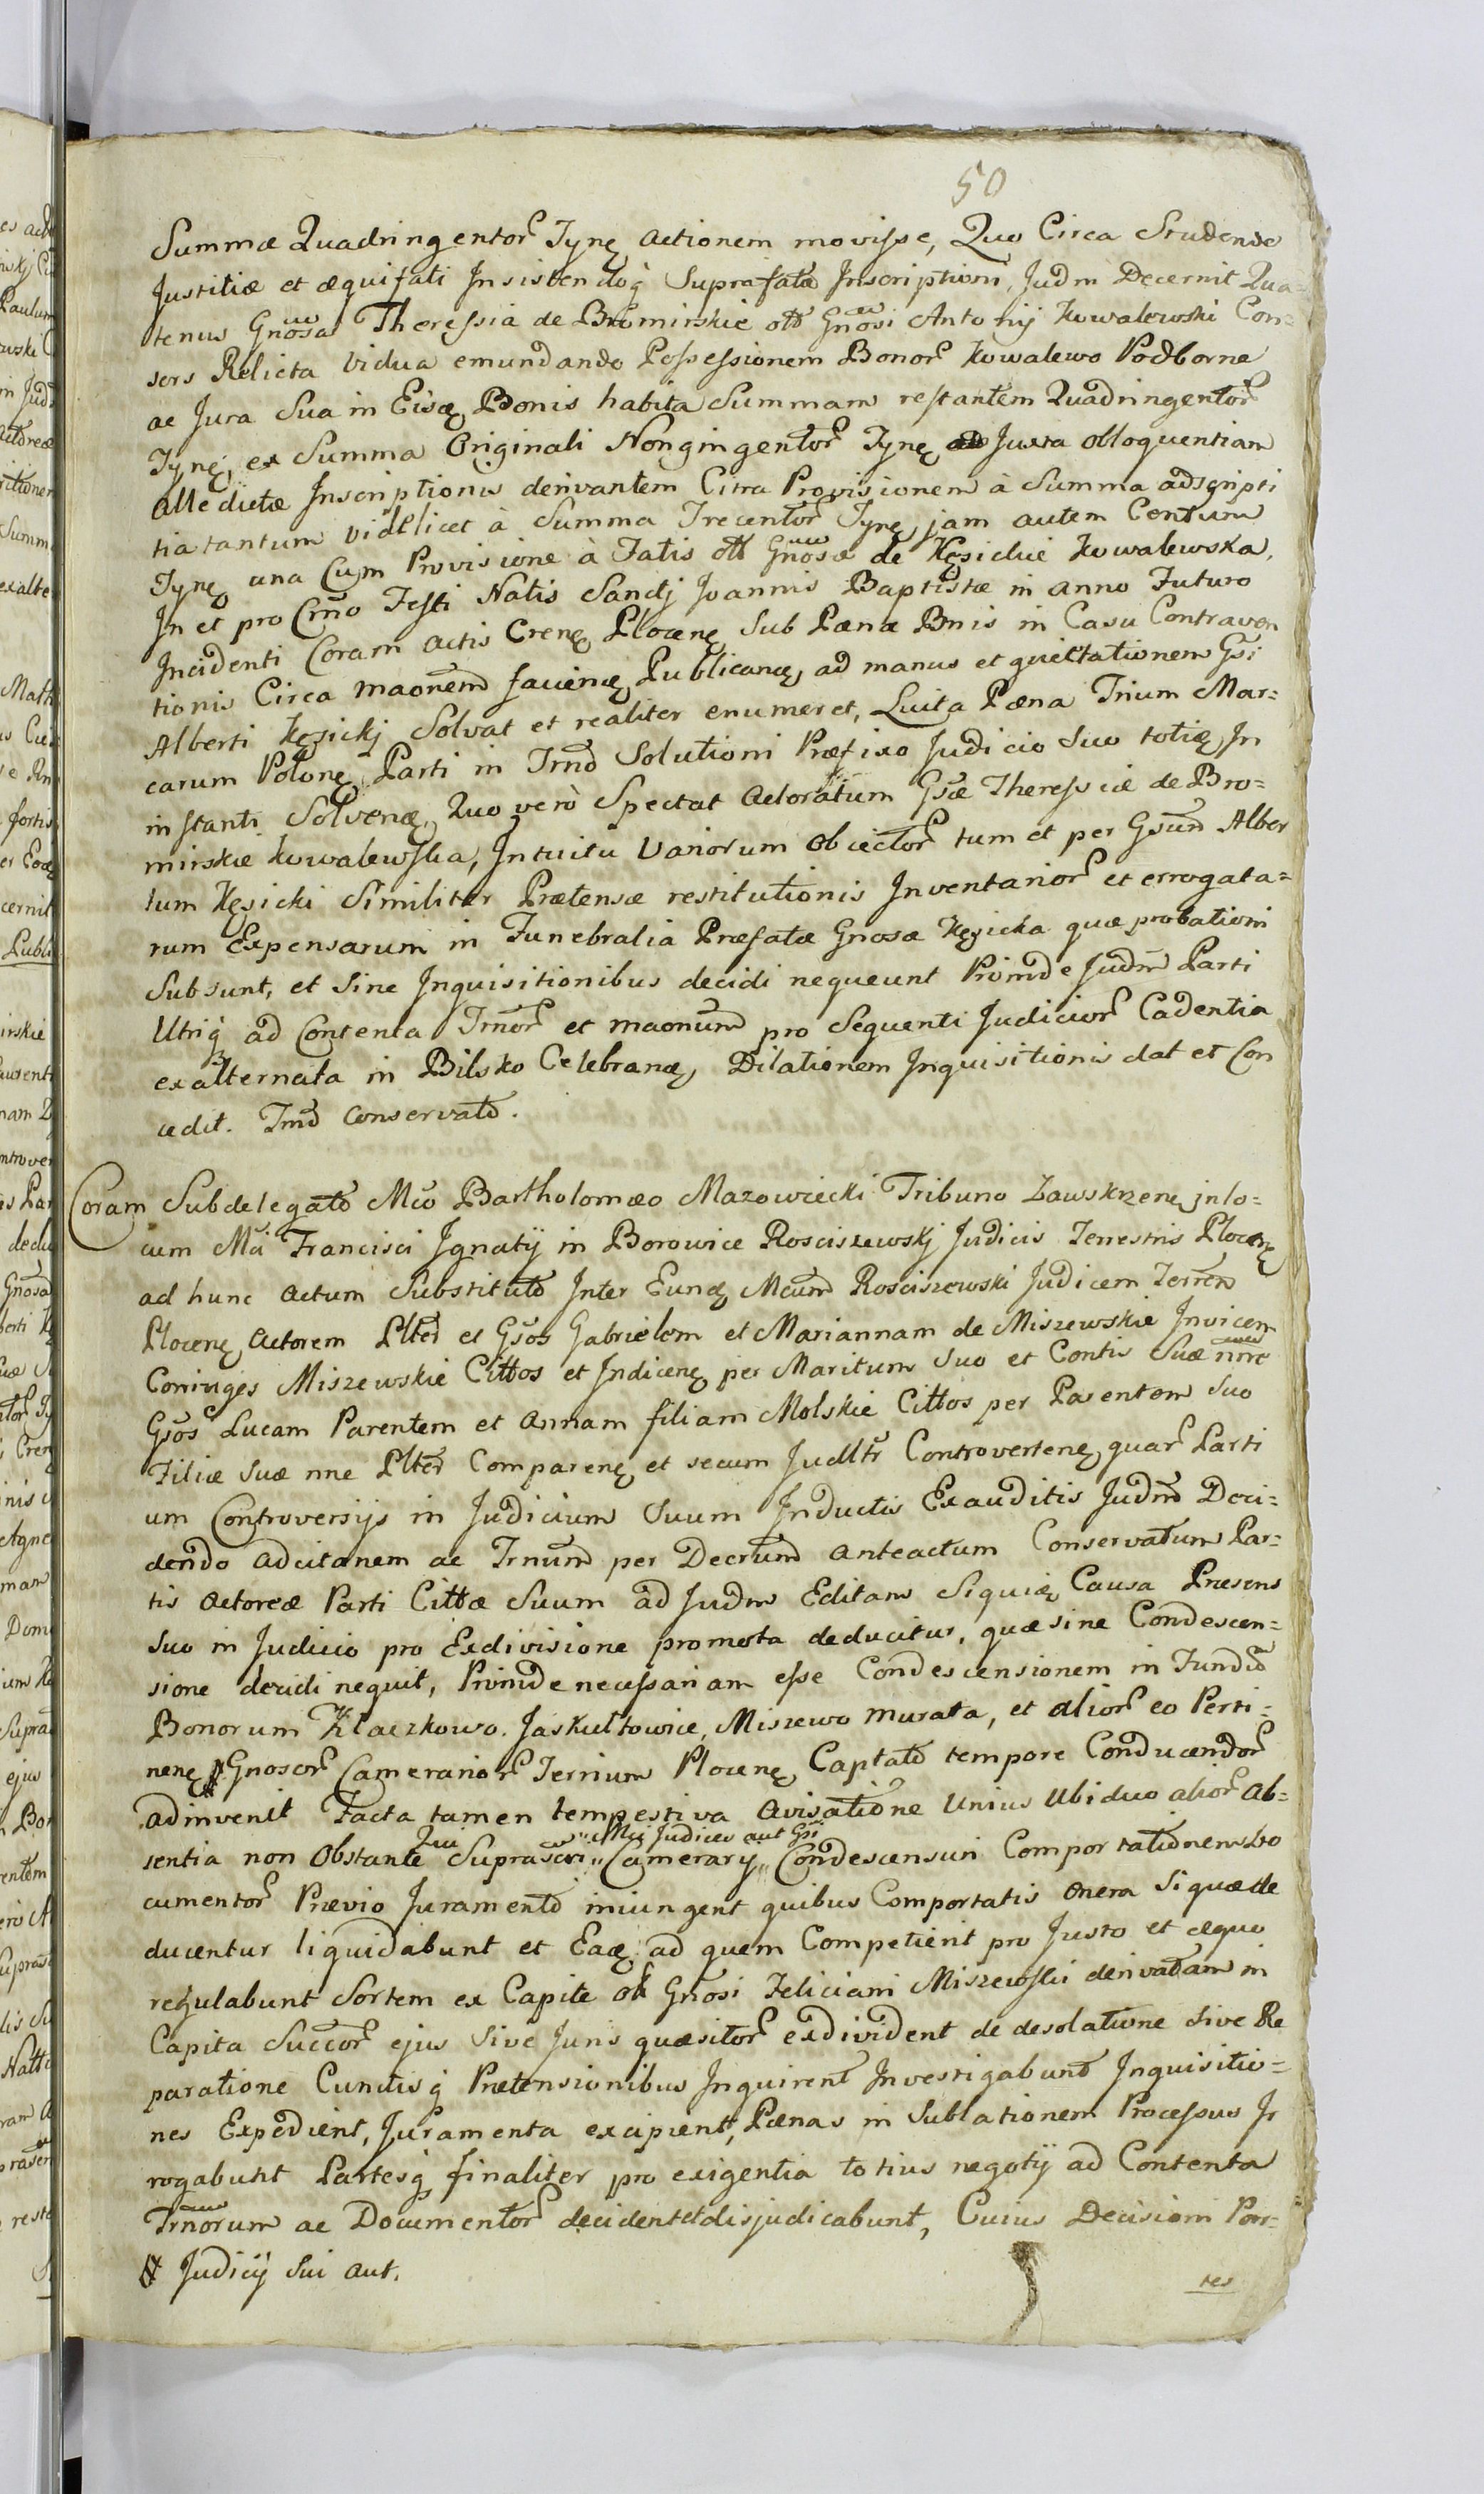 50
Summæ Quadringentor Tynę actionem movisse, Quo Circa Studendo
Justitiæ et æquitati Insistendoq̀ Suprafatæ Inscriptioni, Judm Decernit Qua=
tenus Gnosa Theressia de Bromirskie olt Gnosi Antonij Kowalewski Con=
sors Relicta Vidua emundando Possessionem Bonor Kowalewo Podborne
ac Jura Sua in Eisdę Bonis habita Summam restantem Quadringentor
Tynę, ex Summa Originali Nongingentor Tynę Juxta olloquentiam
alle dictæ Inscriptionis derivantem Citra Provisionem à Summa adscripti
tia tantum videlicet à Summa Trecentor Tynę, jam autem Centum
Tynę una Cum Provisione à Fatis olt Gnosæ de Kęsickie Kowalewska,
In et pro Crmo Festi Natis Sanctj Joannis Baptistæ in anno Futuro
Incidenti Coram actis Crenę Plocenę Sub Pæna Bnis in Casu Contraven
tionis Circa maonem faciendę Publicanę, ad manus et quiettationem Gsi
Alberti Kęsickj Solvat et realiter enumeret, Luita Pæna Trium Mar=
carum Polonę Parti in Trno Solutioni Præfixo Judicio Suo totię In
instanti Solvenę, Quo verò Spectat actoratum Gsæ Theressiæ de Bro=
mirskie Kowalewska, Intuitu Variorum obiector tum et per Gsum Alber
tum Kęsicki Similiter Prætensæ restitutionis Inventarior et errogata=
rum Expensarum in Funebralia Præfatæ Gnosæ Kęsicka quæ probationi
Subsunt, et Sine Inquisitionibus decidi nequeunt Proinde Judm Parti
Utriq̀ ad Contenta Trnor et maonum pro Sequenti Judicior Cadentia
ex alternata in Bilsko Celebranę, Dilationem Inquisitionis dat et Con
cedit. Trno Conservato.
Coram Subdelegato Mco Bartholomæo Mazowiecki Tribuno Zawskrzenę inlo=
cum Mci Francisci Ignatij in Borowice Rosciszewskj Judicis Terrestris Plocenę
ad hunc actum Substituto Inter Eundę Mcum Rosciszewski Judicem Terren
Plocenę actorem Plter et Gsos Gabrielem et Mariannam de Miszewskie Invicem
Coniuges Miszewskie Cittos et Indicenę per Maritum Suo et Contis Suæ nne
Gsos Lucam Parentem et Annam filiam Molskie Cittos per Parentem Suo
Filiæ Suæ nne Plter Comparenę et secum Judltr Controvertenę, quar Parti
um Controversijs in Judicium Suum Inductis Exauditis Judm Deci=
dendo adcitanem ac Trnum per Decrum anteactum Conservatum Par=
tis actoreæ Parti Cittæ Suum ad Judm Editam Siquidę Causa Præsens
Suo in Judicio pro Exdivisione promota deducitur, quæ sine Condescen=
sione decidi nequit, Proinde necessariam esse Condescensionem in Fundo
Bonorum Kłaczkowo. Jaskułtowice, Miszewo Murata, et alior eo Perti=
nenę Gnosor Camerarior Ternium Plocenę Captato tempore Conducendor
adinvenit Facta tamen tempestiva avisatione Unius Ubi duo alior Ab=
Qui Mci Judices aut Gsi
sentia non Obstante Suprascri Camerarij Condescensuri Comportationem Do
cumentor Prævio Juramento iniungent quibus Comportatis onera Si quæ de
ducentur liquidabunt et Eadę ad quem Competierit pro Justo et æquo
regulabunt Sortem ex Capite olt Gnosi Feliciani Miszewski derivatam in
Capita Succor ejus Sive Juris quæsitor exdivident de desolatione Sive Re
paratione Cunctisq̀ Prætensionibus Inquirent Investigabunt Inquisitio=
nes Expedient, Juramenta excipient, Pænas in Sublationem Processus Ir
rogabunt Partesq̀ finaliter pro exigentia totius negotij ad Contenta
Trnorum ac Documentor decident et disjudicabunt, Cuius Decisioni Par=
Judicij Sui aut.
tes